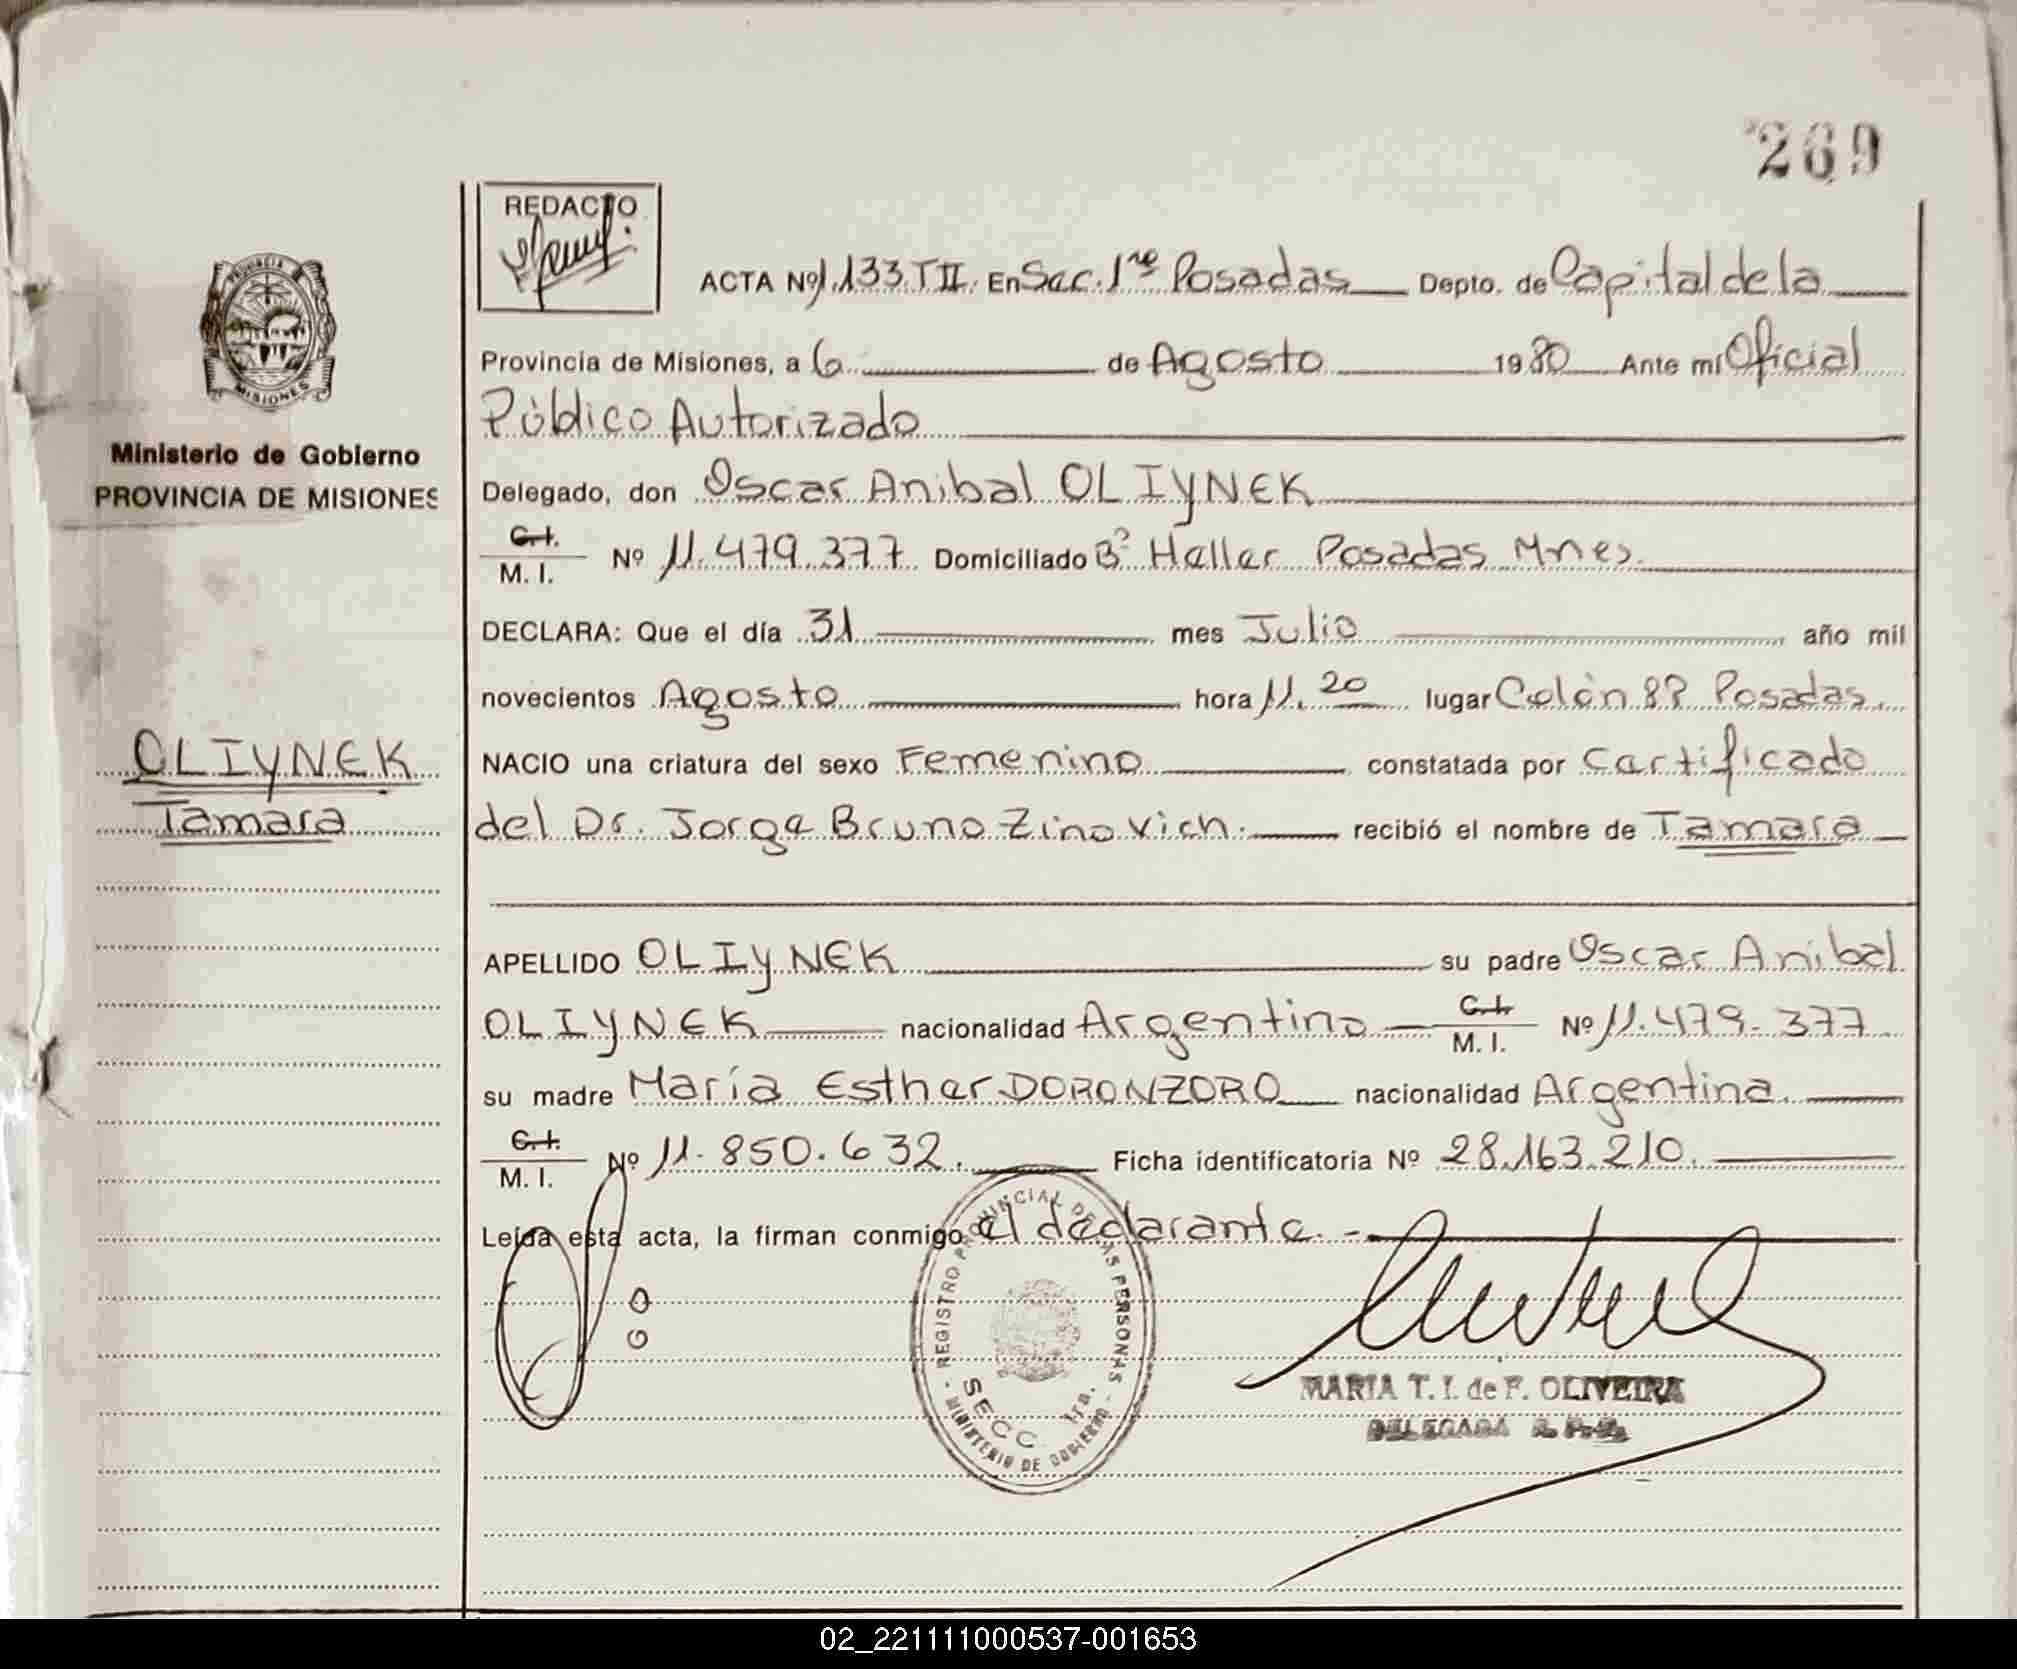 269
REDACTO
ACTA Nº 1.133 T II. En Sec. 1ra Posadas Depto. de Capital de la
Provincia de Misiones, a 6 de Agosto 1980 Ante mi Oficial
Público Autorizado
PROVINCIA
MISIONES
Ministerio de Gobierno
PROVINCIA DE MISIONES
Delegado, don Oscar Anibal OLIYNEK
C.I.
M. I. Nº 11.479.377 Domiciliado Bº Heller Posadas Mnes.
DECLARA: Que el día 31 mes Julio año mil
novecientos Agosto hora 11.20 lugar Colón 8? Posadas.
OLIYNEK
Tamara
NACIO una criatura del sexo Femenino constatada por Certificado
del Dr. Jorge Bruno Zinovich. recibió el nombre de Tamara
APELLIDO OLIYNEK su padre Oscar Anibal
OLIYNEK nacionalidad Argentino C.I.
M. I. Nº 11.479.377
su madre María Esther DORONZORO nacionalidad Argentina.
C.I.
M. I. Nº 11.850.632. Ficha identificatoria Nº 28.163.210.
Leída esta acta, la firman conmigo el declarante. -
REGISTRO PROVINCIAL DE LAS PERSONAS
SECC 1ra.
MINISTERIO DE GOBIERNO
MARIA T. I. de F. OLIVEIRA
DELEGADA R. P. P.
02_221111000537-001653